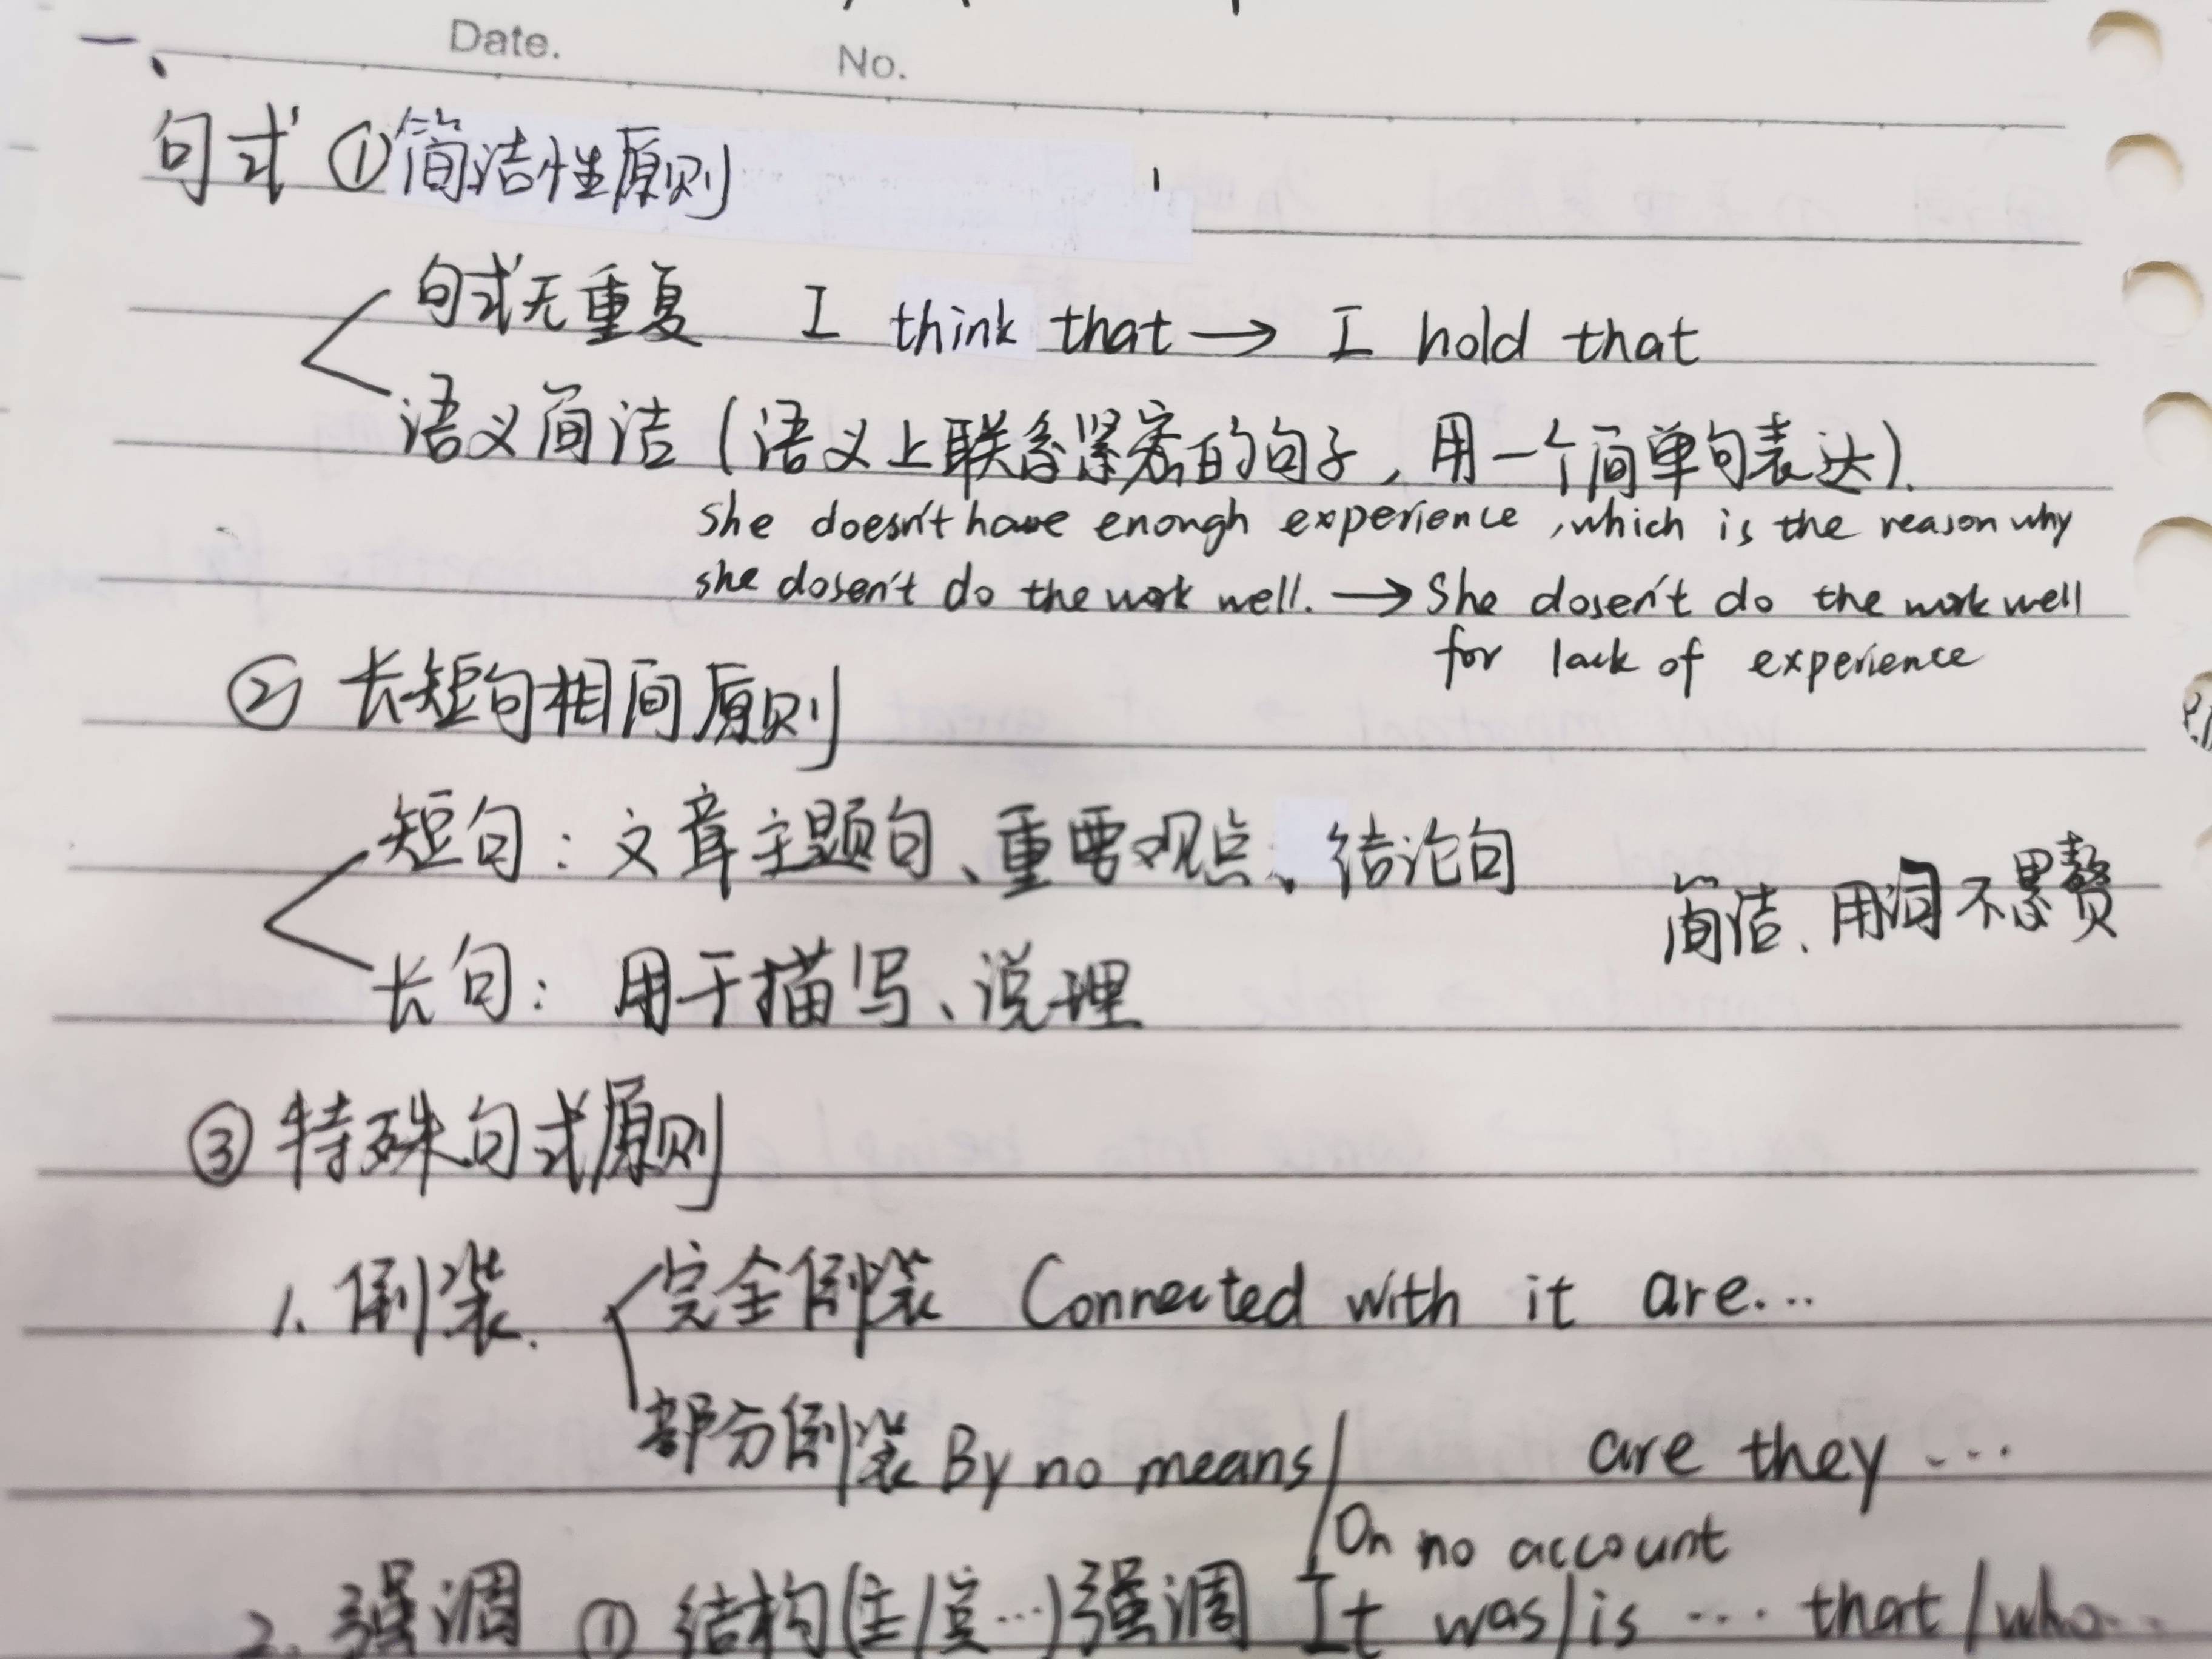 一、
Date.
No.
句式 ①简洁性原则
句式无重复 I think that → I hold that
语义简洁 (语义上联系紧密的句子, 用一个简单句表达).
She doesn't have enough experience, which is the reason why
she dosen't do the work well. → She dosen't do the work well
for lack of experience
② 长短句相间原则
短句: 文章主题句、重要观点、结论句
简洁、用词不累赘
长句: 用于描写、说理
③ 特殊句式原则
1. 倒装. 完全倒装 Connected with it are...
部分倒装 By no means/ are they ...
/On no account
2. 强调 ① 结构(主/宾...)强调 It was/is ... that/who...